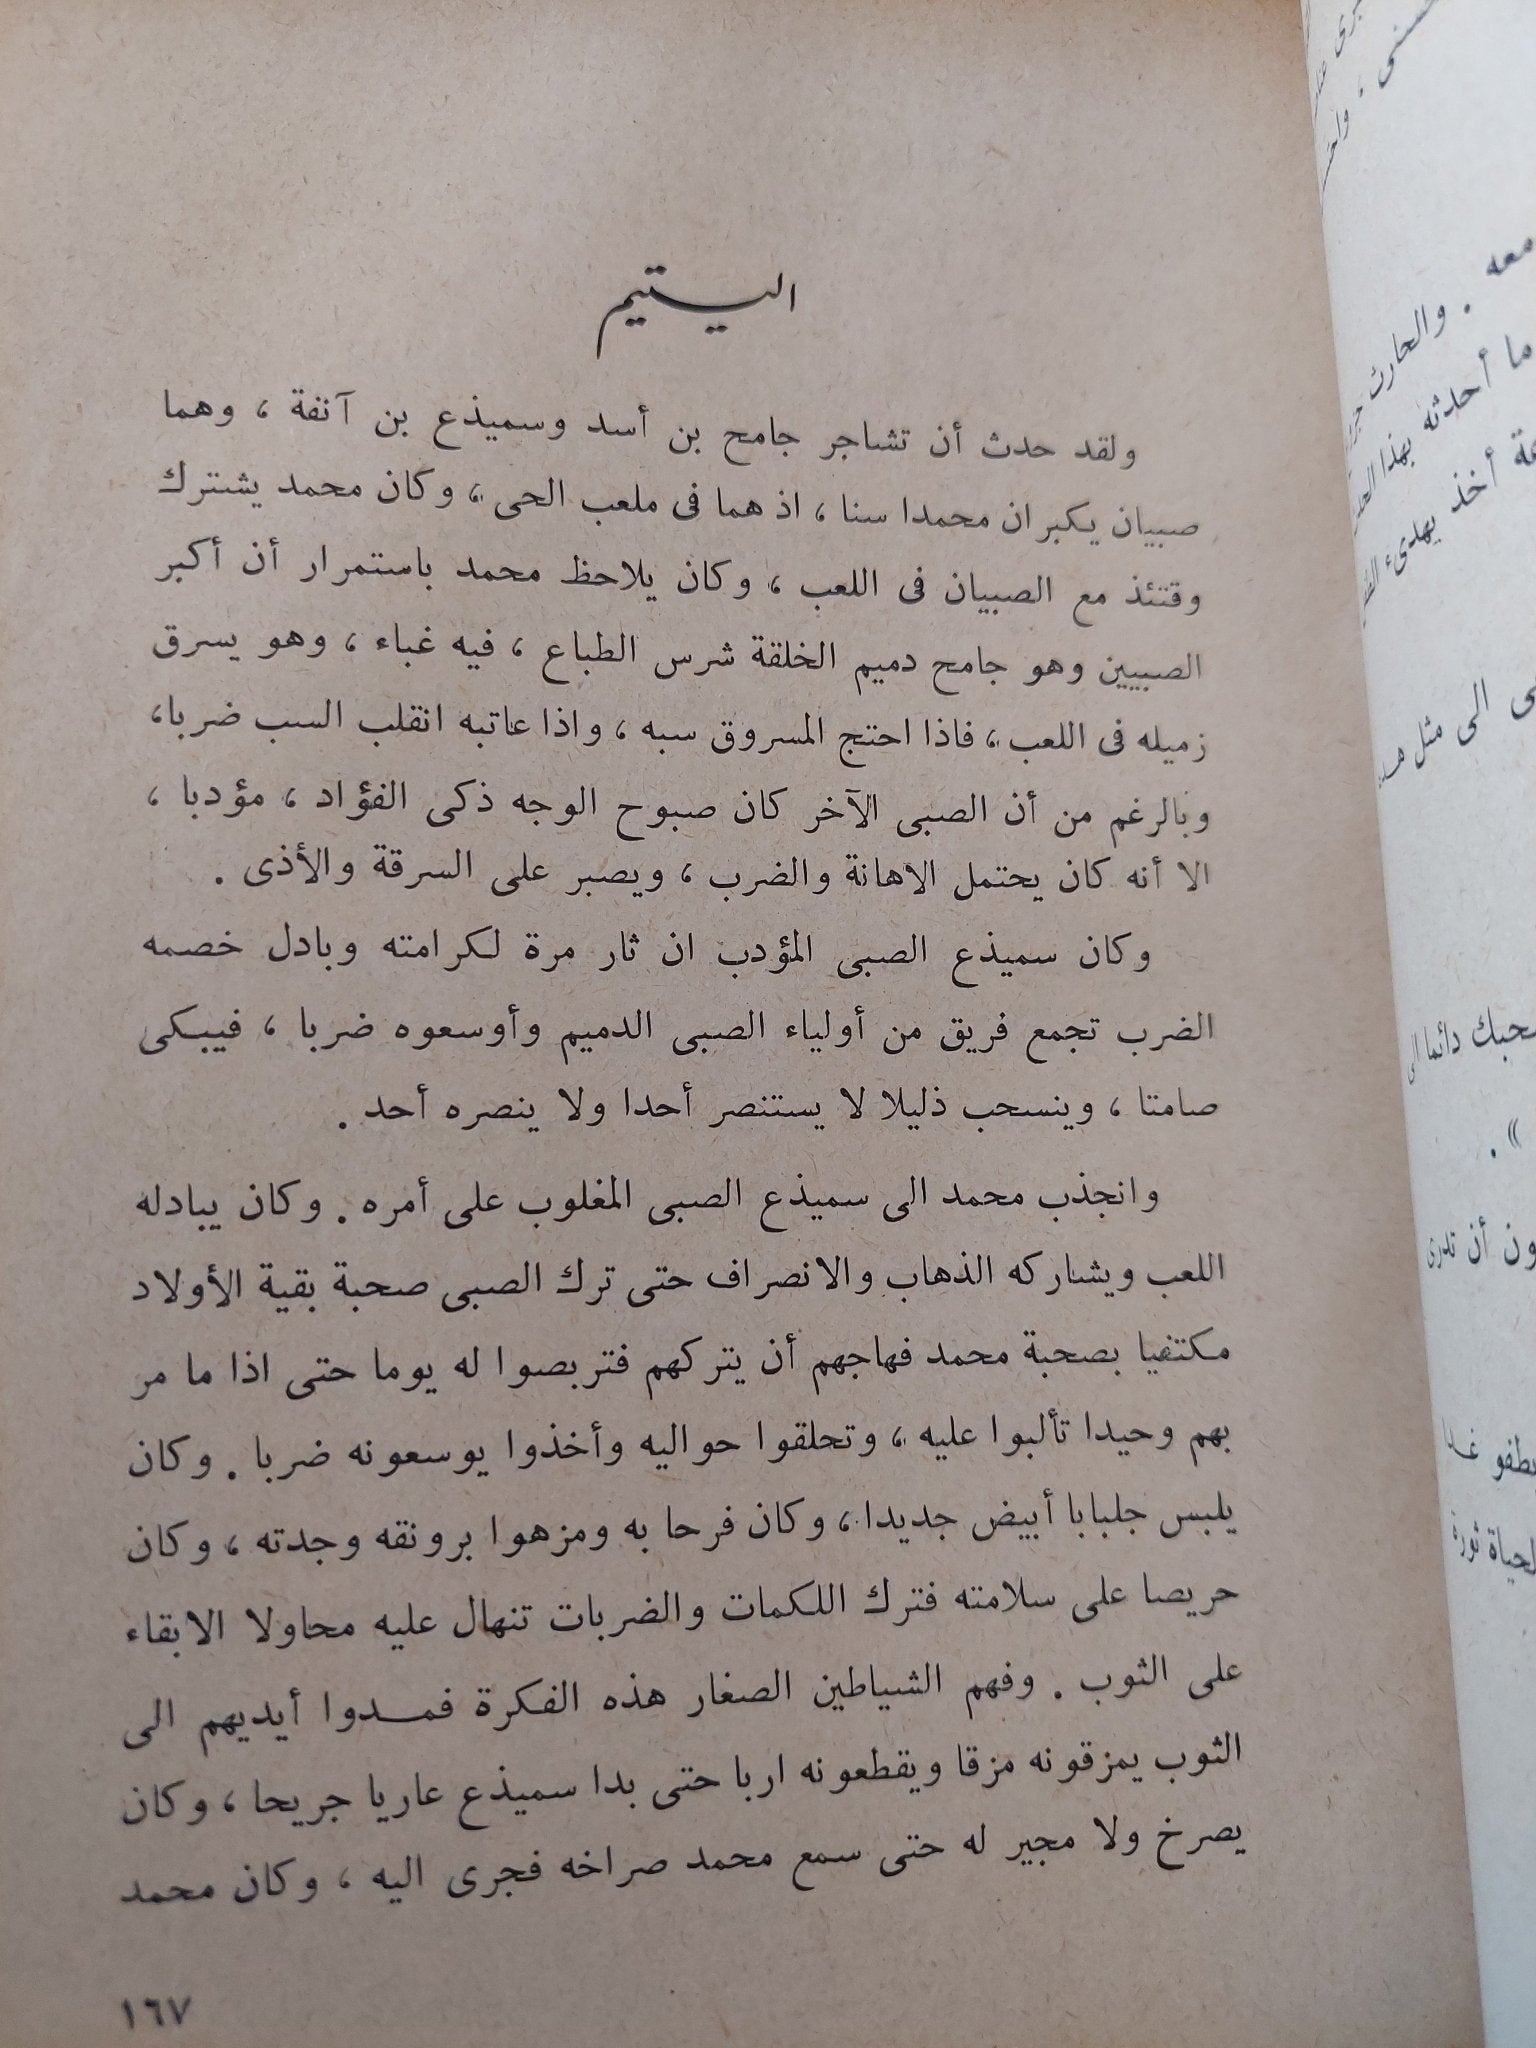 اليتيم
ولقد حدث أن تشاجر جامح بن أسد وسميذع بن آنفة ، وهما
صبيان يكبران محمدا سنا ، اذ هما فى ملعب الحى ، وكان محمد يشترك
وقتئذ مع الصبيان فى اللعب ، وكان يلاحظ محمد باستمرار أن أكبر
الصبيين وهو جامح دميم الخلقة شرس الطباع ، فيه غباء ، وهو يسرق
زميله فى اللعب ، فاذا احتج المسروق سبه ، واذا عاتبه انقلب السب ضربا ،
وبالرغم من أن الصبى الآخر كان صبوح الوجه ذكى الفؤاد ، مؤدبا ،
الا أنه كان يحتمل الاهانة والضرب ، ويصبر على السرقة والأذى .
وكان سميذع الصبى المؤدب ان ثار مرة لكرامته وبادل خصمه
الضرب تجمع فريق من أولياء الصبى الدميم وأوسعوه ضربا ، فيبكى
صامتا ، وينسحب ذليلا لا يستنصر أحدا ولا ينصره أحد .
وانجذب محمد الى سميذع الصبى المغلوب على أمره . وكان يبادله
اللعب ويشاركه الذهاب والانصراف حتى ترك الصبى صحبة بقية الأولاد
مكتفيا بصحبة محمد فهاجهم أن يتركهم فتربصوا له يوما حتى اذا ما مر
بهم وحيدا تألبوا عليه ، وتحلقوا حواليه وأخذوا يوسعونه ضربا . وكان
يلبس جلبابا أبيض جديدا ، وكان فرحا به ومزهوا برونقه وجدته ، وكان
حريصا على سلامته فترك اللكمات والضربات تنهال عليه محاولا الابقاء
على الثوب . وفهم الشياطين الصغار هذه الفكرة فمدوا أيديهم الى
الثوب يمزقونه مزقا ويقطعونه اربا حتى بدا سميذع عاريا جريحا ، وكان
يصرخ ولا مجير له حتى سمع محمد صراخه فجرى اليه ، وكان محمد
١٦٧
معه . والحارث
ما أحدثه بهذا
أخذ يهدىء
الى مثل
دائما الى
» .
أن تدرى
ثورة